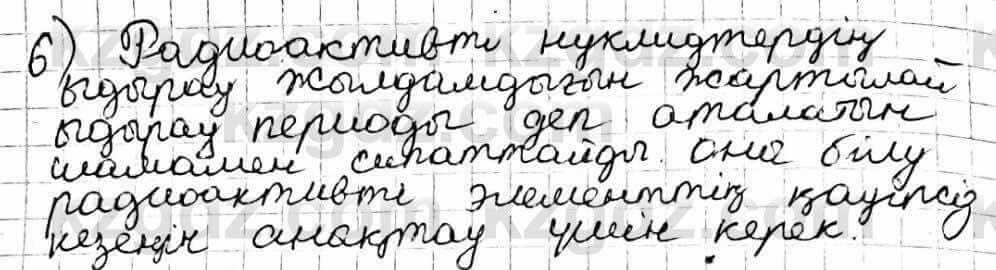 6) Радиоактивті нуклидтердің
ыдырау жылдамдығын жартылай
ыдырау периоды деп аталатын
шамамен сипаттайды. Оны білу
радиоактивті элементтің қауіпсіз
кезеңін анақтау үшін керек.